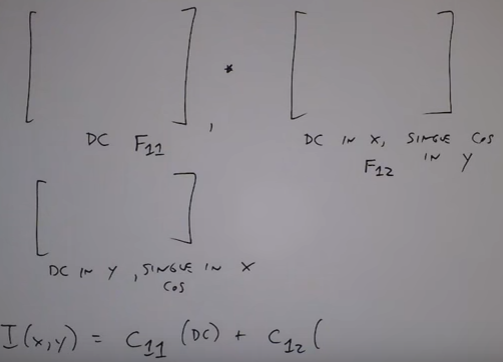 DC F11
DC IN X, SINGLE COS
IN Y
F12
DC IN Y, SINGLE IN X
COS
I(x,y) = C11 (DC) + C12 (